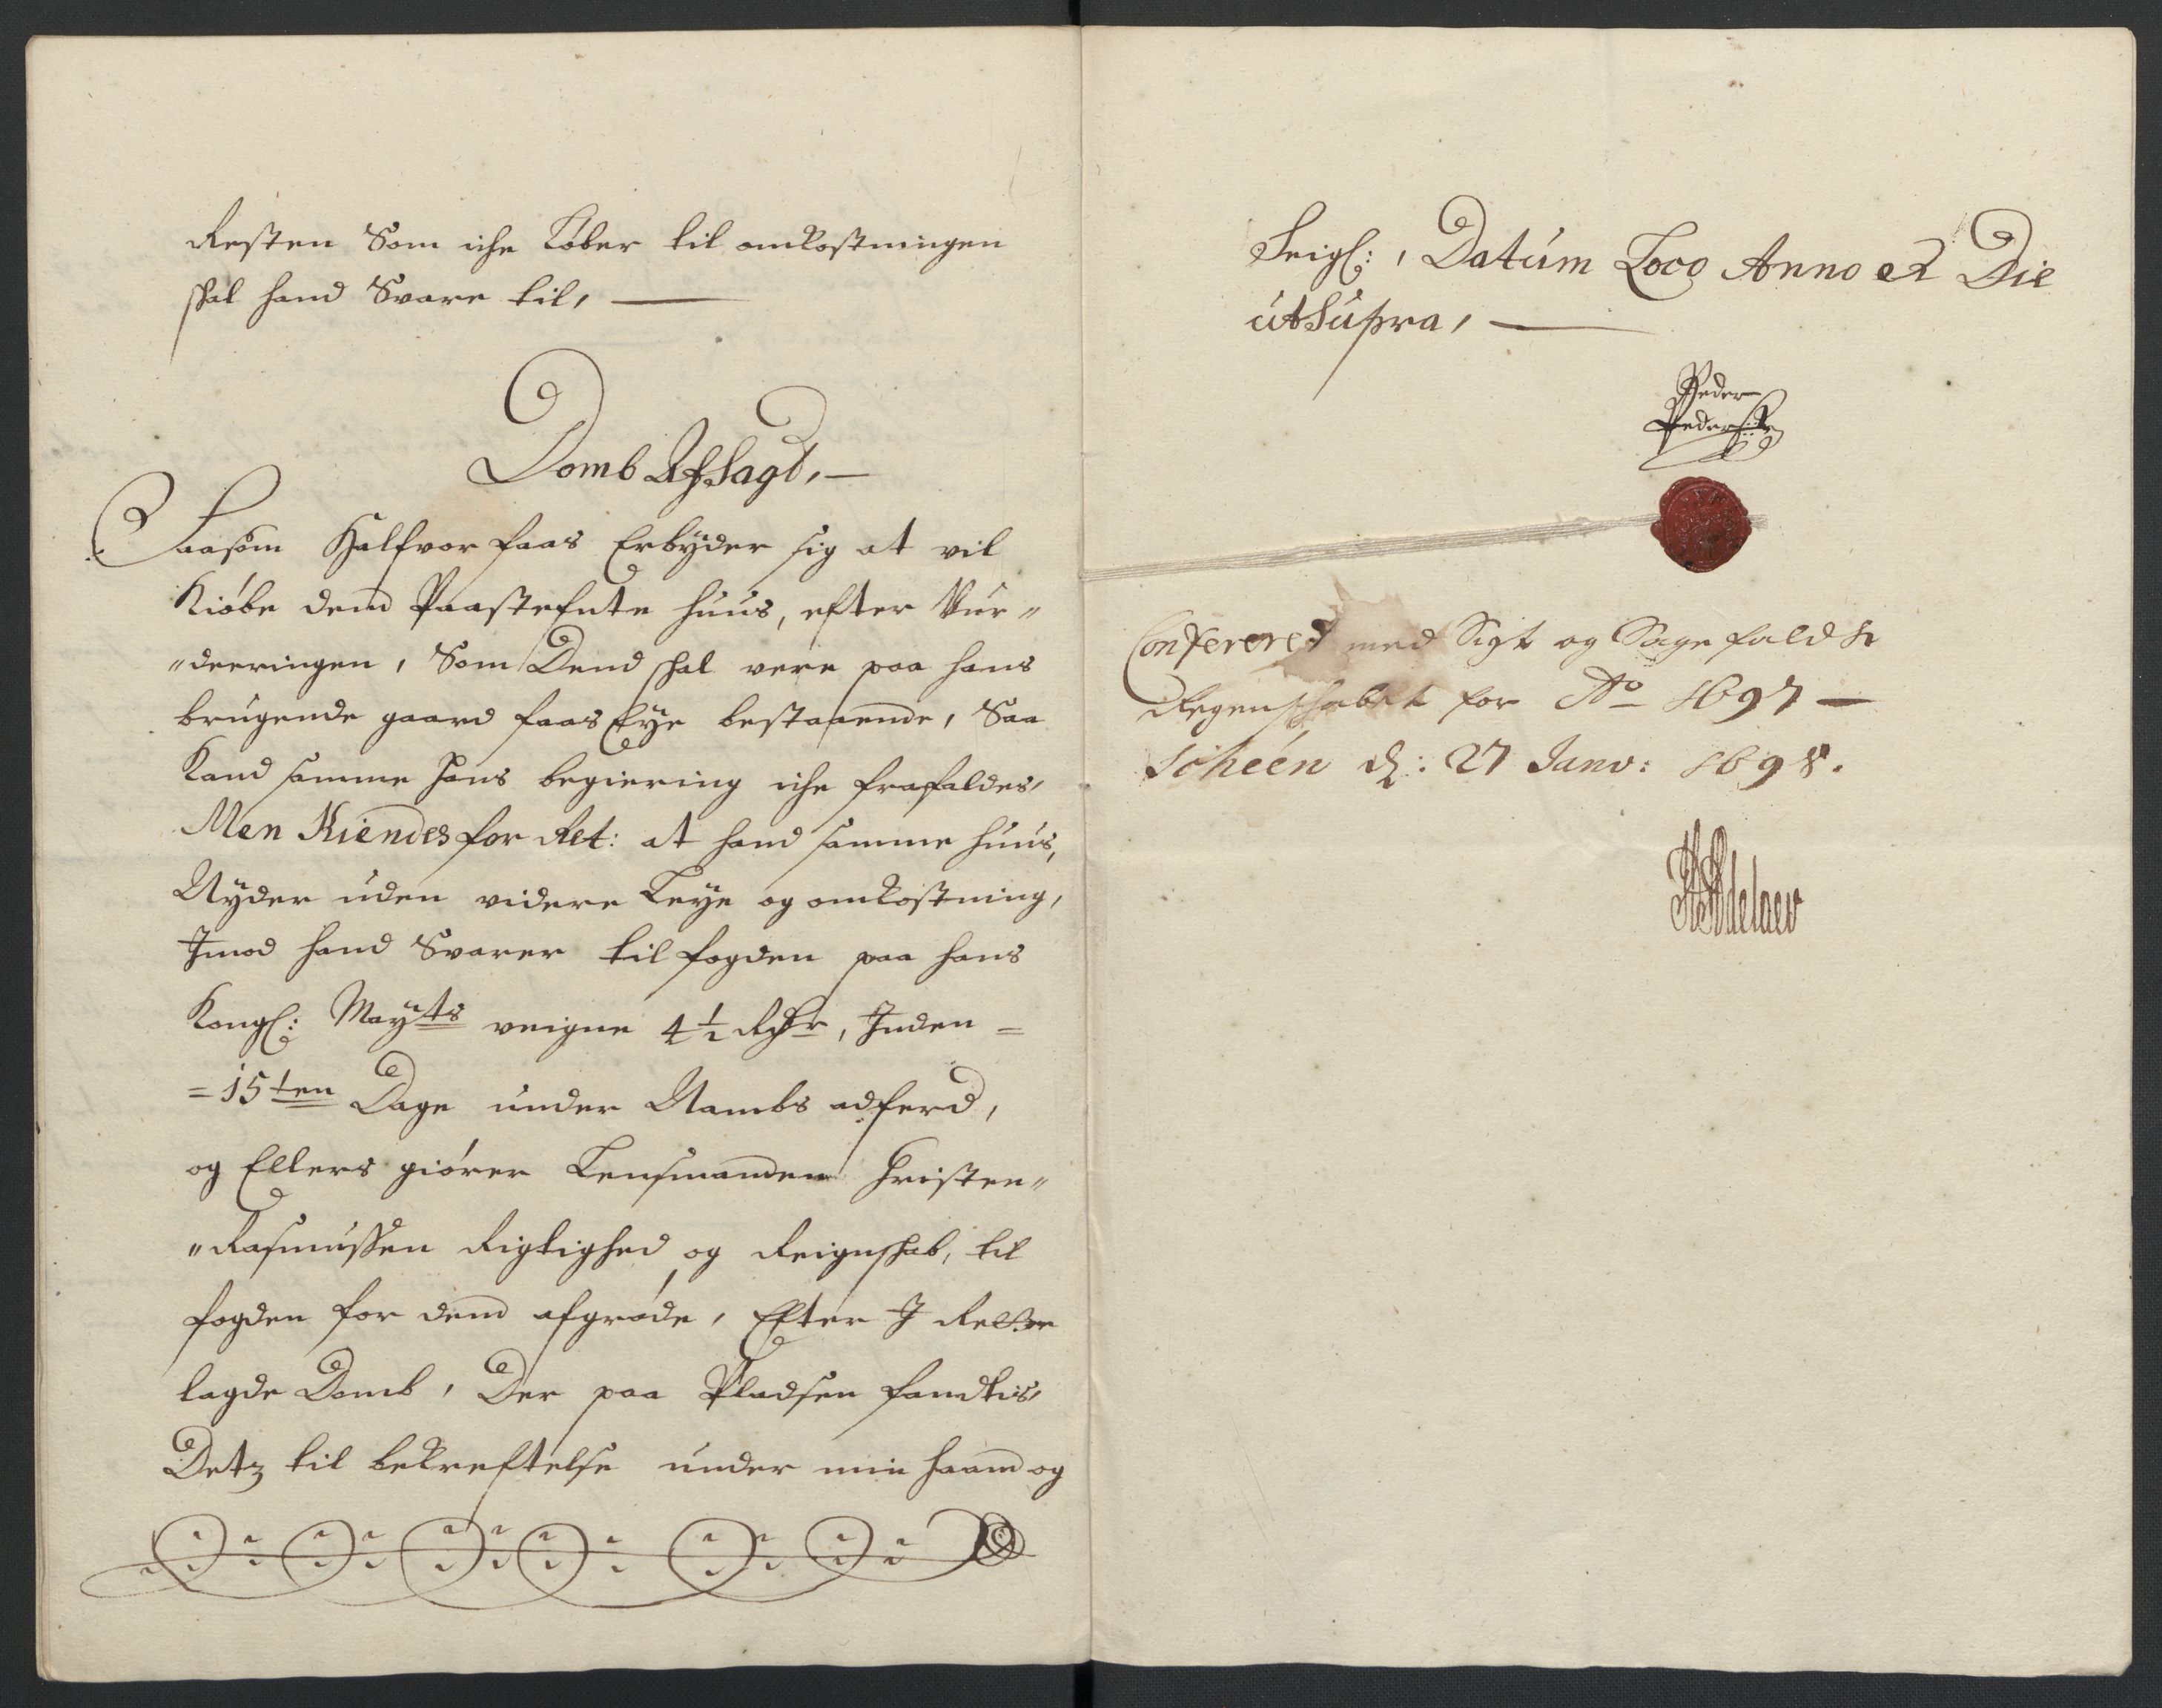 Resten Som iche Løber til omkostningen
skal hand Svare til,
Domb Afsagd,
Saasom Halfvor faas Erbyder sig at vil
Kiøbe dend Paastefnte huus, efter Vur„
„deeringen, Som Dend skal vere paa hans
brugende gaard faas Eye bestaaende, Saa
Kand samme hans begiering iche frafaldes,
Men Kiendes for Ret: at hand samme huus,
Nyder uden videre Leye og omkostning,
Imod hand Svarer til fogden paa hans
Kongl: Mayts veigne 4½ Rdr, Inden=
=15ten Dage under Nambs adferd,
og Ellers giører Lensmanden Christen„
„Rasmussen Rigtighed og Reignskab, til
fogden for dend afgrøde, Efter I Retten
lagde Domb, Der paa Pladsen fandtis,
Detz til bekreftelse under min haand og
Seigl:, Datum Loco Anno et Die
utSupra,
Peder
Peders:
Confereret med Sigt og Sagefalds
Regenskabet for Ao 1697
Scheen d: 27 Janv: 1698.
Adelaer